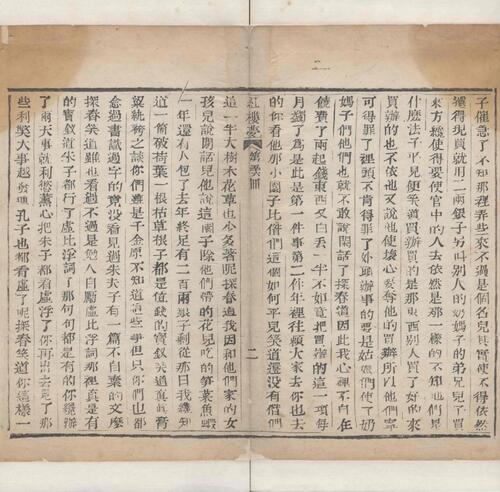 子催急了不知那裡弄些來不過是個名兒其實使不得依然
還得現買就用二兩銀子另叫別人的奶媽子的弟兄兒子
來方纔使得要使官中的人去依然是那一樣的不知他們是
什麼法子平兒便笑道買辦買的是那東西別人買了好的來
買辦的也不依他又說他使壞心要奪他的買辦所以他們寧
可得罪了裡頭不肯得罪了外頭辦事的要是姑娘們使了奶
媽子們他們也就不敢說閒話了探春道因此我心裡不自在
饒費了兩起錢東西又白丟一半不如竟把買辦的這一項每
月蠲了爲是此是第一件事第二件年裡往賴大家去你也去
的你看他那小園子比偺們這個如何平兒笑道還沒有偺們
紅樓夢 第 囘 二
這一半大樹木花草也少多著呢探春道我因和他們家的女
孩兒說閒話兒他說這園子除他們帶的花兒吃的笋菜魚蝦
一年還有人包了去年終足有二百兩銀子剩從那日我纔知
道一個破荷葉一根枯草根子都是值錢的寶釵笑道真真膏
粱紈袴之談你們雖是千金原不知道這些事但只你們也都
念過書識過字的竟沒看見過朱夫子有一篇不自棄的文麽
探春笑道雖也看過不過是勉人自勵虛比浮詞那裡真是有
的寶釵道朱子都行了虛比浮詞了那句句都是有的你纔辦
了兩天事就利慾薰心把朱子都看虛浮了你再出去見了那
些利弊大事越發連孔子也都看虛了呢探春笑道你這樣一